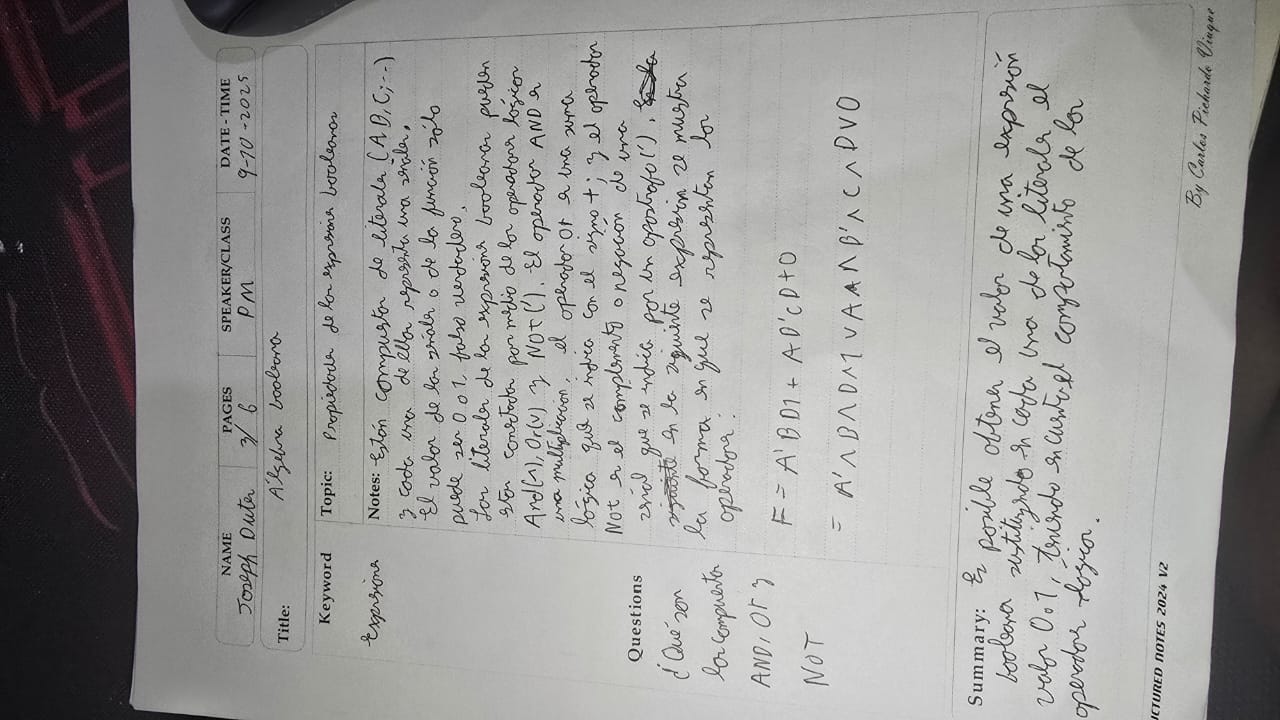 NAME
Joseph Duter
PAGES
3/6
SPEAKER/CLASS
PM
DATE - TIME
9-10-2025
Title: Álgebra booleana
Keyword
Expresione
Topic: Propiedade de las expresione booleanas
Notes: Están compuesta de literale (A, B, C, ...)
y cada una de ella representa una señale.
El valor de las señale o de la función sólo
puede ser 0 o 1, falso verdadero.
Los literale de las expresione booleana pueden
star conectada por medio de los operadore lógicos
And(∧), Or(∨) y NOT('). El operador AND e
una multiplicación, el operador Or e una suma
lógica que se indica con el signo +; y el operador
Not es el complemento o negación de una
señal que se indica por un apostrofo(').
en la siguiente expresión se muestra
la forma en que se representan los
operadore:
F = A'BD1 + AB'CD+0
= A' ∧ B ∧ D ∧ 1 ∨ A ∧ B' ∧ C ∧ D ∨ 0
Questions
¿Qué son
las compuertas
AND, Or y
NOT
Summary: Es posible obtener el valor de una expresión
booleana sustituyendo en cada una de los literale el
valor 0 o 1, teniendo en cuenta el comportamiento de los
operadore lógicos.
CTURED NOTES 2024 V2
By Carlos Pichardo Viuque